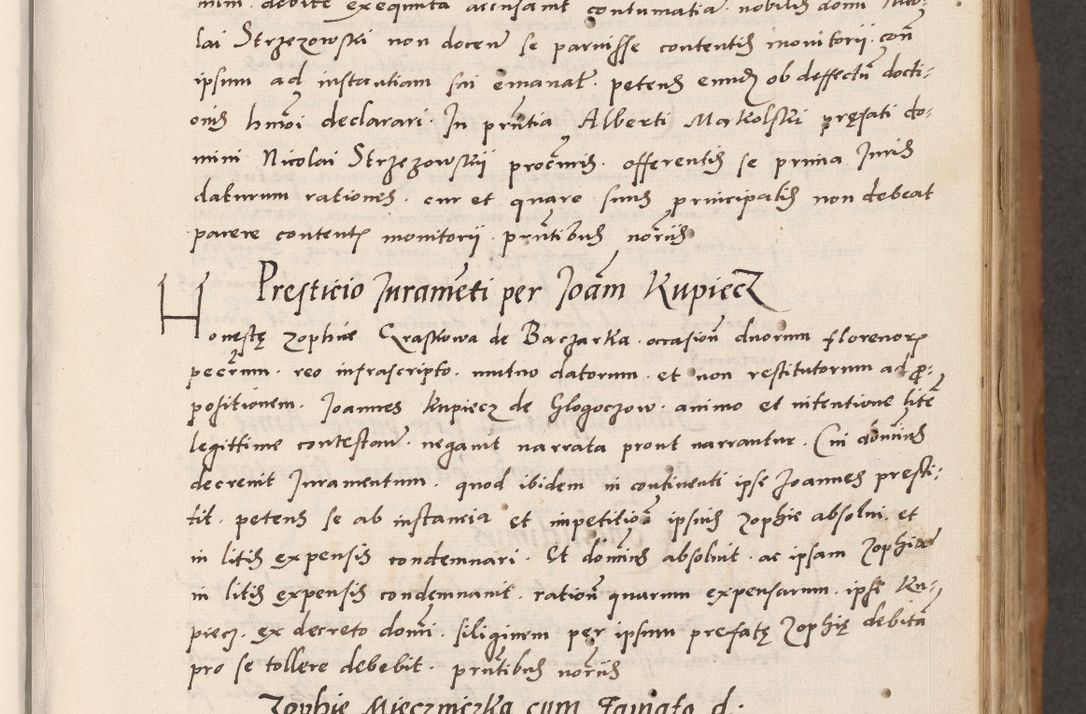 nium debite exequuta accusavit contumatia nobilis domi Nico-
lai Strzezowski non docen se paruisse contentis monitorii con
ipsum ad instantiam sui emanat. petens eund ob deffectu docti-
onis hmoi declarari. In pñtia Alberti Makolski pręfati do-
mini Nicolai Strzezowskii procuris. offerentis se prima Juris
daturum rationes. cur et quare suus principalis non debeat
parere content monitorii. pñtibus noriis
Pręsticio Juramēti per Joām Kupiecz
Honestę Zophie Qraskowa de Baczarka. occasion duorum florenor
pecrum. reo infrascripto. mutuo datorum. et non restitutorum ad pro-
positionem. Joannes Kupiecz de Glogoczow. animo et intentione litē
legittime contestan. negavit narrata prout narrantur. Cui dominus
decrevit Juramentum. quod ibidem in continenti ipse Joannes pręsti-
tit. petens se ab instancia et impetitioē ipsius Zophie absolvi et
in litis expensis condemnari. Et dominus absolvit. ac ipsam Zophia
in litis expensis condemnavit. ration quarum expensarum. ipse Ku-
piecz. ex decreto domi. siliginem per ipsum prefatę Zophię debita
pro se tollere debebit. pñtibus noriis
Zophie Mieczniczka cum Famato d.